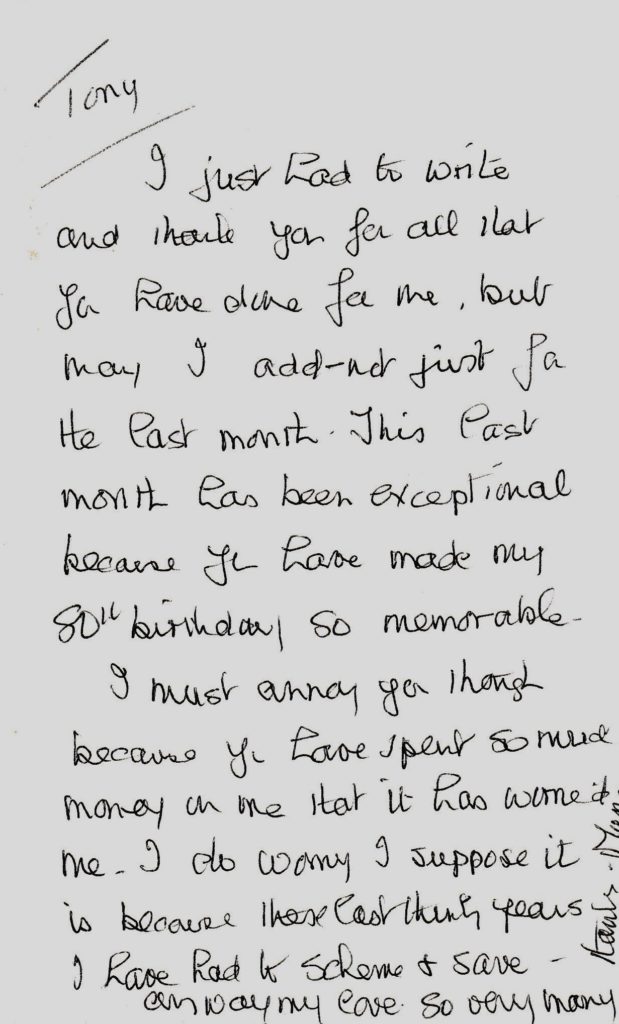 Tony
I just had to write
and thank you for all that
you have done for me, but
may I add-not just for
the last month. This last
month has been exceptional
because you have made my
80th birthday so memorable-
I must annoy you though
because you have spent so much
money on me that it has worried
me - I do worry I suppose it
is because these last thirty years
I have had to scheme & save -
anyway my love so very many
thanks -